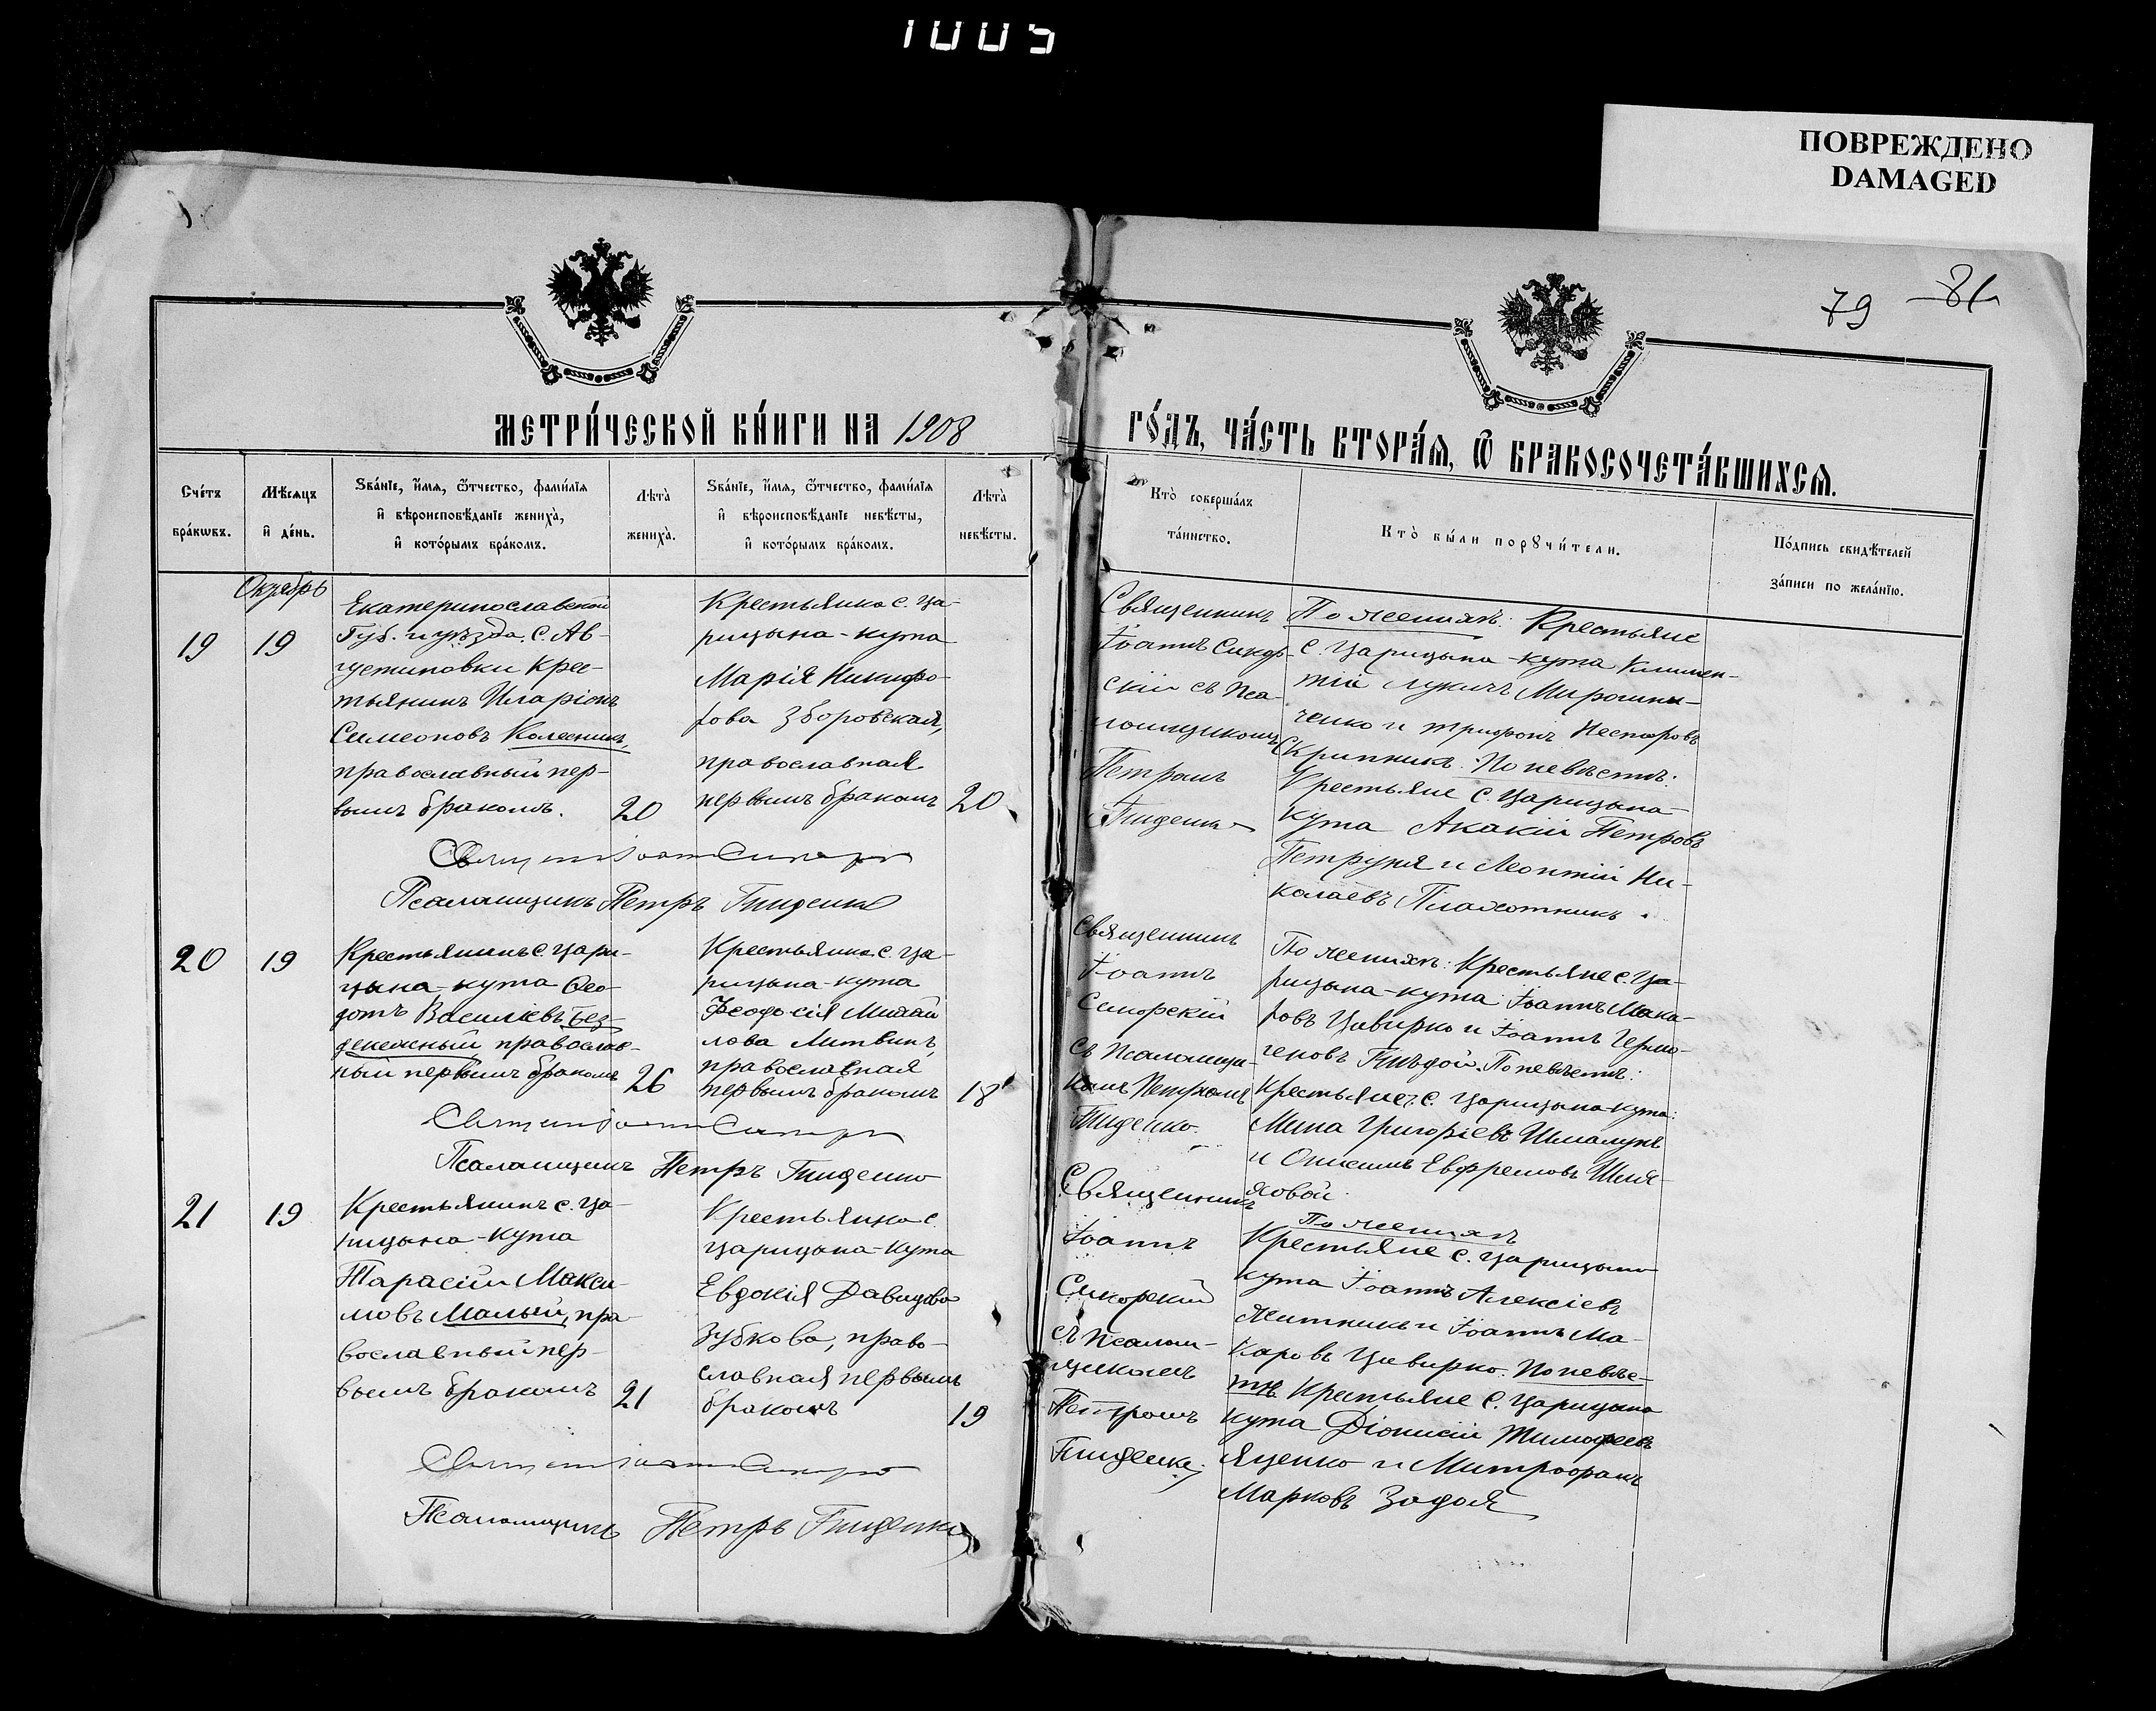 1005
ПОВРЕЖДЕНО
DAMAGED
79 81
МЕТРИ́ЧЕСКОЙ КНИ́ГИ НА 1908
ГО́ДЪ, ЧА́СТЬ ВТОРА́Я, Ѿ БРАКОСОЧЕТА́ВШИХСЯ.
Сче́тъ
бра́кѡвъ.
Мѣ́сяцъ
и҆ де́нь.
Ѕва́нїе, и҆́мя, ѻ҆́тчество, фами́лїя
и҆ вѣроисповѣ́данїе жениха̀,
и҆ кото́рымъ бра́комъ.
Лѣта̀
жениха̀.
Ѕва́нїе, и҆́мя, ѻ҆́тчество, фами́лїя
и҆ вѣроисповѣ́данїе невѣ́сты,
и҆ кото́рымъ бра́комъ.
Лѣта̀
невѣ́сты.
Кто̀ соверша́лъ
та́инство.
Кто̀ бы́ли порꙋчи́тели.
По́дпись свидѣ́телей
за́писи по жела́нїю.
Октябрь
19
19
Екатеринославской
Губ. и уѣзда, с. Ав-
густиновки Крес-
тьянинъ Иларіонъ
Симеоновъ Колесникъ,
православный пер-
вымъ бракомъ.
20
Крестьянка с. Ца-
рицына-кута
Марія Никифо-
рова Зборовская,
православная
первымъ бракомъ
20
Священникъ
Іоаннъ Сикор-
скій съ Пса-
ломщикомъ
Петромъ
Гниденко
По женихѣ: Крестьяне
с. Царицына-кута Климен-
тій Лукичъ Мирошни-
ченко и Трифонъ Несторовъ
Скрипникъ. По невѣстѣ:
Крестьяне с. Царицына-
кута Акакій Петровъ
Петруня и Леонтій Ни-
колаевъ Плахотникъ.
Священникъ Іоаннъ Сикорскій
Псаломщикъ Петръ Гниденко
20
19
Крестьянинъ с. Цари-
цына-кута Ѳео-
дотъ Василіевъ Без-
денежный православ-
ный первымъ бракомъ
26
Крестьянка с. Ца-
рицына-кута
Феодосія Михай
лова Литвинъ,
православная
первымъ бракомъ
18
Священникъ
Іоаннъ
Сикорскій
съ Псаломщи-
комъ Петромъ
Гниденко.
По женихѣ: Крестьяне с. Ца-
рицына-кута: Іоаннъ Мака-
ровъ Цивирко и Іоаннъ Гермо-
геновъ Гнѣдой. По невѣстѣ:
Крестьяне с. Царицына-кута:
Мина Григоріевъ Шмалуня
и Онисимъ Евфремовъ Шля-
ховой.
Священникъ Іоаннъ Сикорскій
Псаломщикъ Петръ Гниденко
21
19
Крестьянинъ с. Ца-
рицына-кута
Тарасій Макси-
мовъ Малый, пра-
вославный пер-
вымъ бракомъ
21
Крестьянка с.
Царицына-кута
Евдокія Давидова
Зубкова, право-
славная первымъ
бракомъ
19
Священникъ
Іоаннъ
Сикорскій
съ Псалом-
щикомъ
Петромъ
Гниденко.
По женихѣ
Крестьяне с. Царицына
кута Іоаннъ Алексіевъ
Житникъ и Іоаннъ Ма-
каровъ Цивирко. По невѣс-
тѣ. Крестьяне с. Царицына
кута Діонисій Тимофеевъ
Яценко и Митрофанъ
Марковъ Задоя
Священникъ Іоаннъ Сикорскій
Псаломщикъ Петръ Гниденко